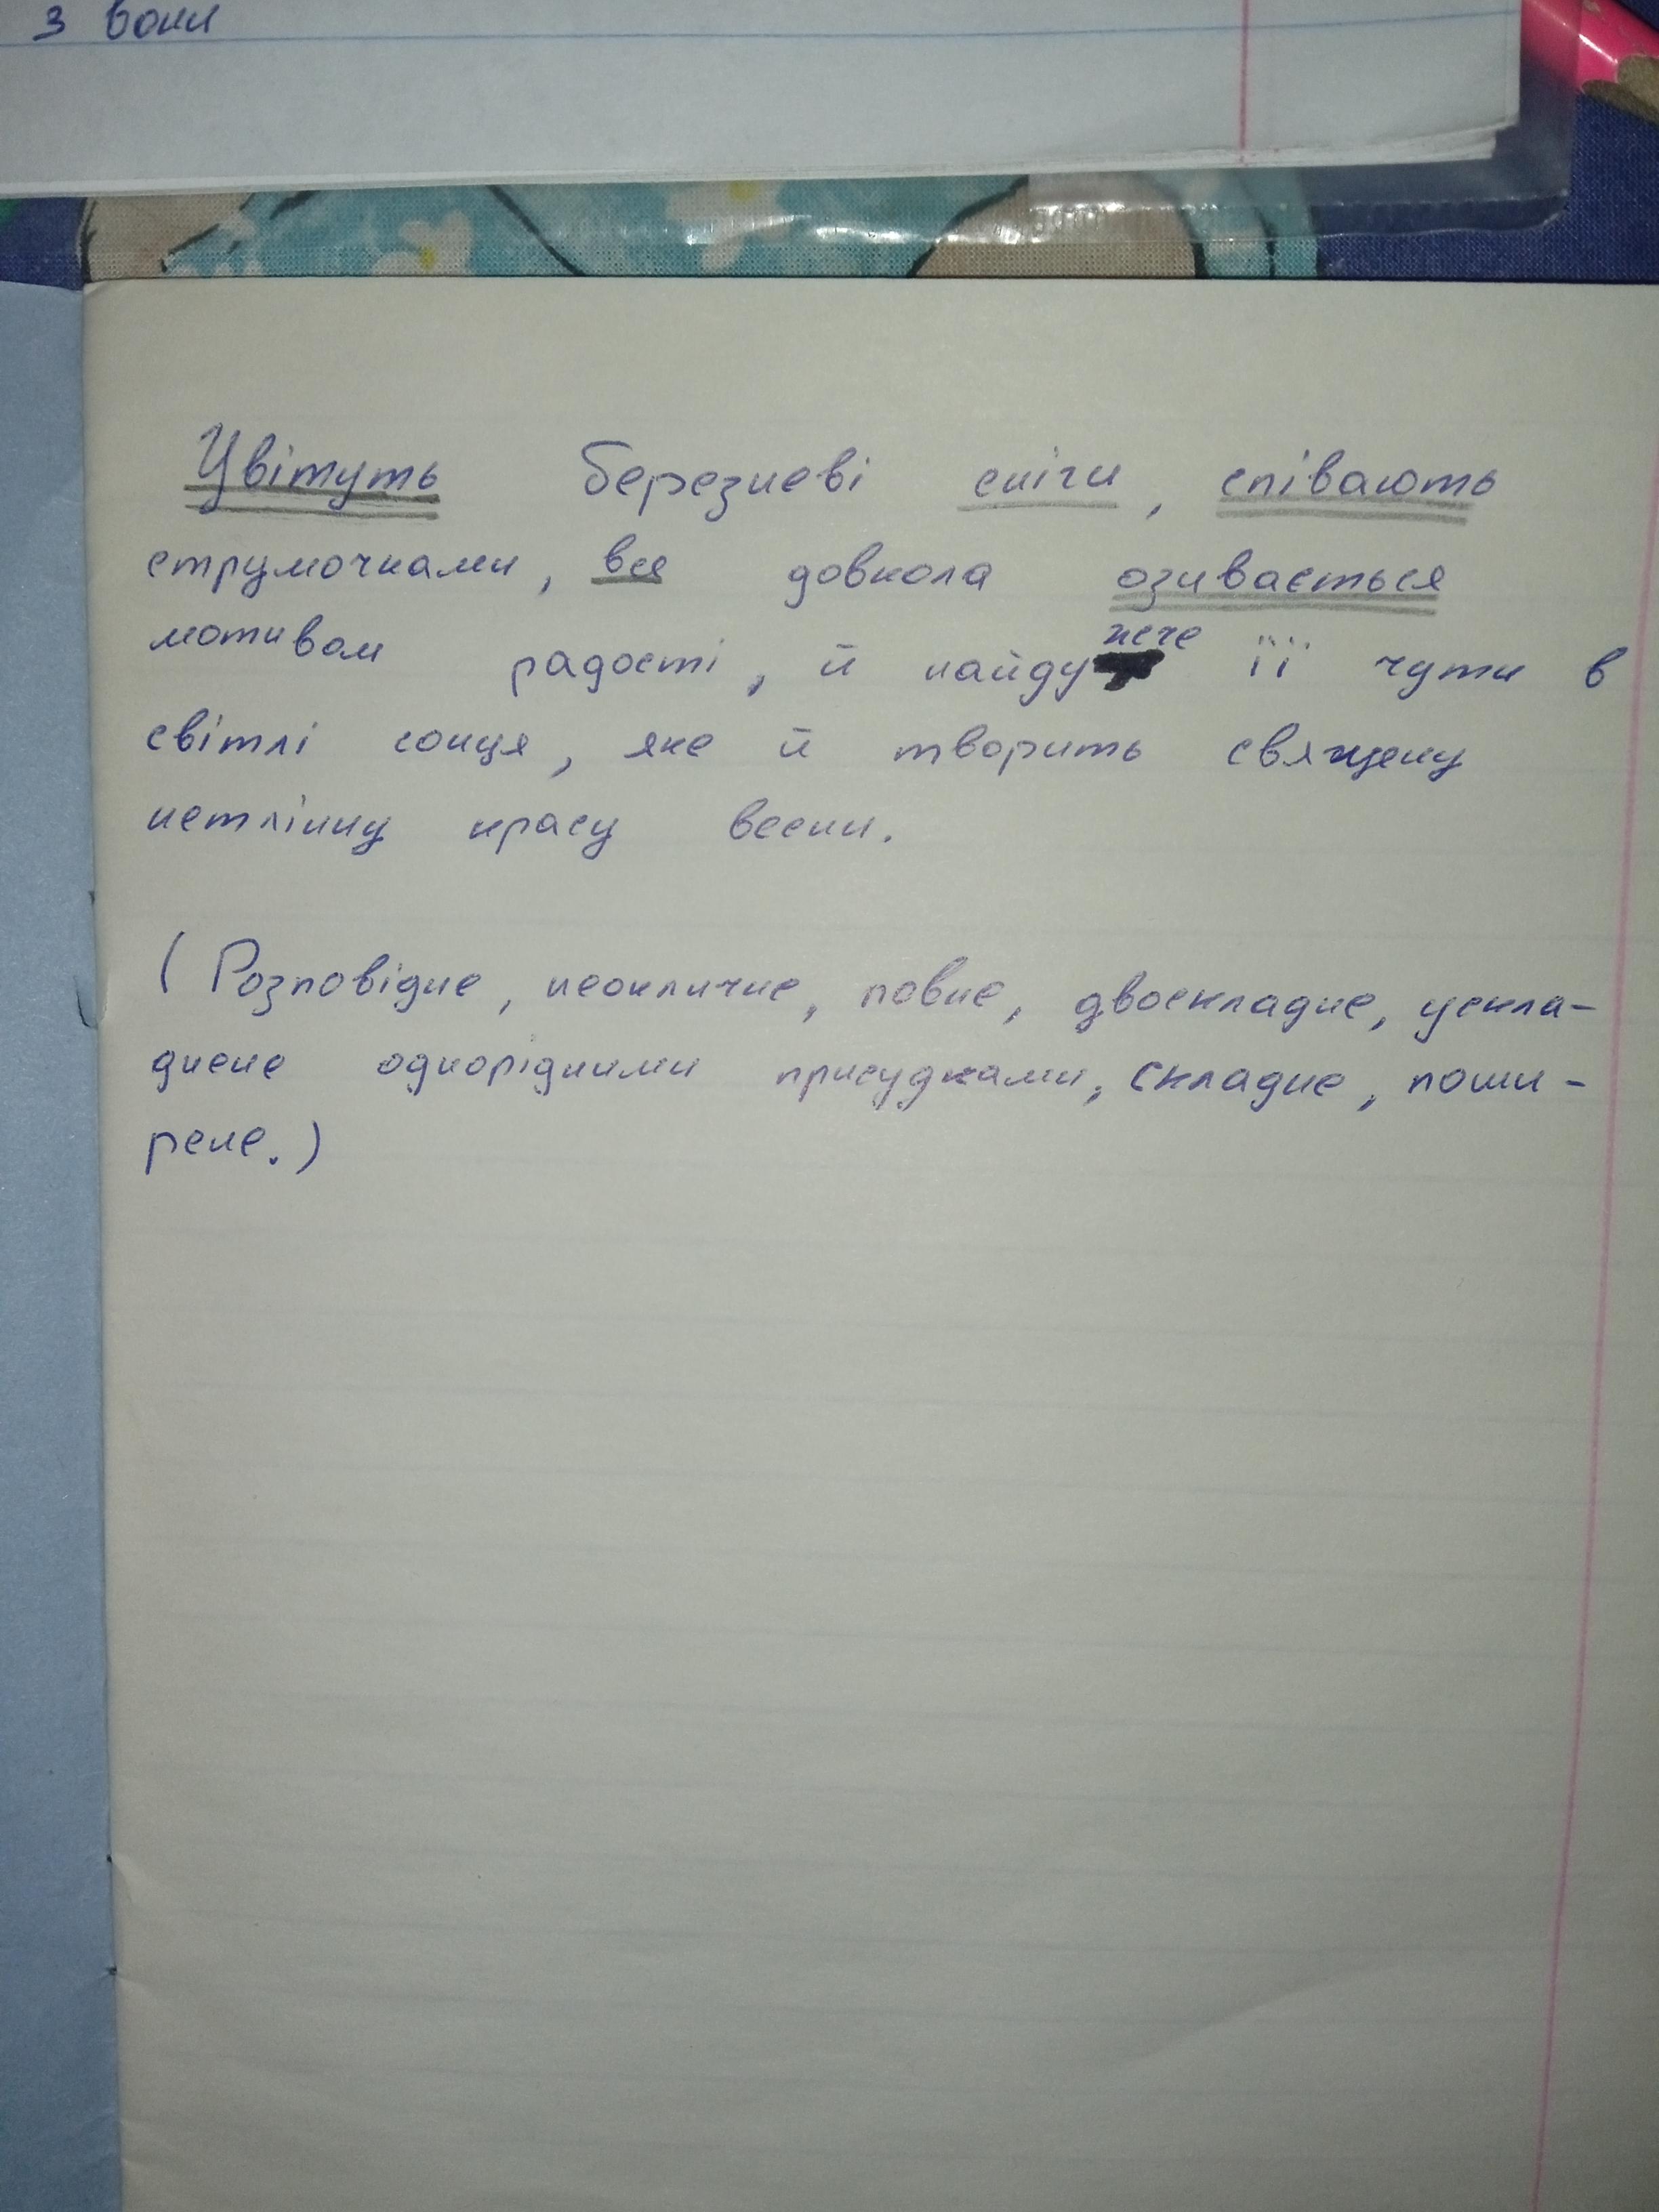 з вони
Цвітуть березневі сніги, співають
струмочками, все довкола озивається
мотивом радості, й найдужче її чути в
світлі сонця, яке й творить священу
нетлінну красу весни.
(Розповідне, неокличне, повне, двоскладне, ускла-
днене однорідними присудками, складне, поши-
рене.)